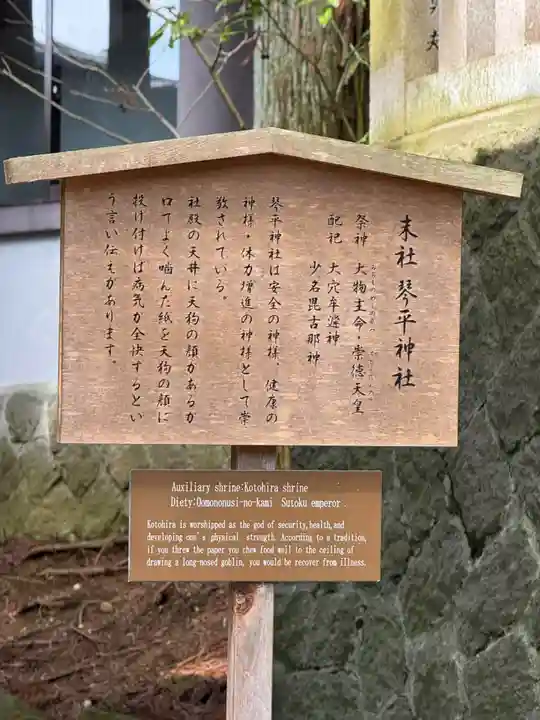 末社 琴平神社
祭神 大物主命・崇徳天皇
配祀 大穴牟遅神
少名毘古那神
琴平神社は安全の神様、健康の
神様・体力増進の神様として崇
敬されている。
社殿の天井に天狗の顔があるが
口でよく噛んだ紙を天狗の顔に
投げ付けば病気が全快するとい
う言い伝えがあります。
Auxiliary shrine:Kotohira shrine
Diety:Oomononusi-no-kami Sutoku emperor
Kotohira is worshipped as the god of security,health,and
developing one's physical strength. According to a tradition,
if you threw the paper you chew food well to the ceiling of
drawing a long-nosed goblin, you would be recover from illness.